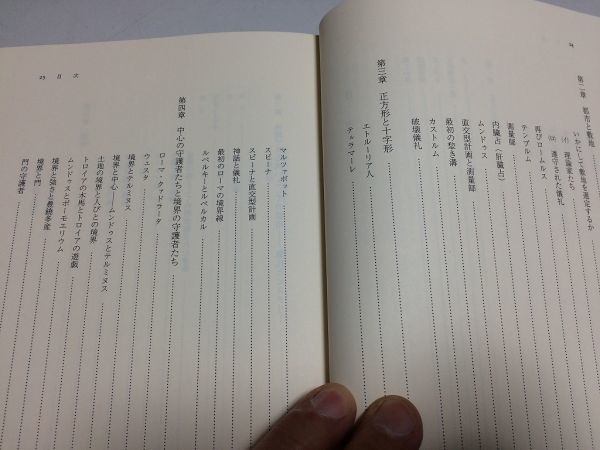 24
第二章 都市と敷地
いかにして敷地を選定するか
(イ) 理論家たち
(ロ) 遵守された儀礼
再びロームルス
テンプルム
測量部
内臓占(肝臓占)
ムンドゥス
直交型計画と測量部
最初の犁き溝
カストルム
破壊儀礼
第三章 正方形と十字形
エトルーリア人
テラマーレ
マルツァボット
スピーナ
スピーナと直交型計画
神話と儀礼
最初のローマの境界線
ルペルキーとルペルカル
第四章 中心の守護者たちと境界の守護者たち
ローマ・クァドラータ
ウェスタ
境界とテルミヌス
境界と中心――ムンドゥスとテルミヌス
土地の境界と人びとの境界
トロイアの木馬とトロイアの遊戯
ムンドゥスとポーモエリウム
境界と強さと豊饒多産
境界と門
門の守護者
25 目次